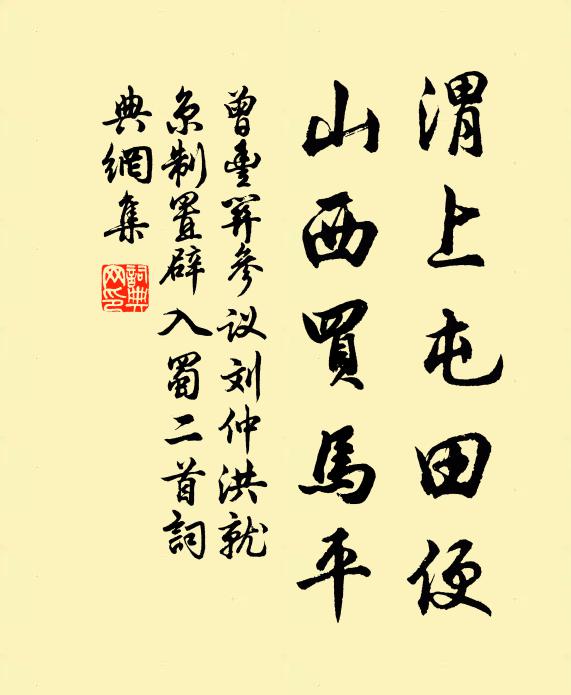 渭上屯田便
山西買馬平
曾豐參议刘仲洪就
京制置辟入蜀二首詞
典網集
詞典
网印